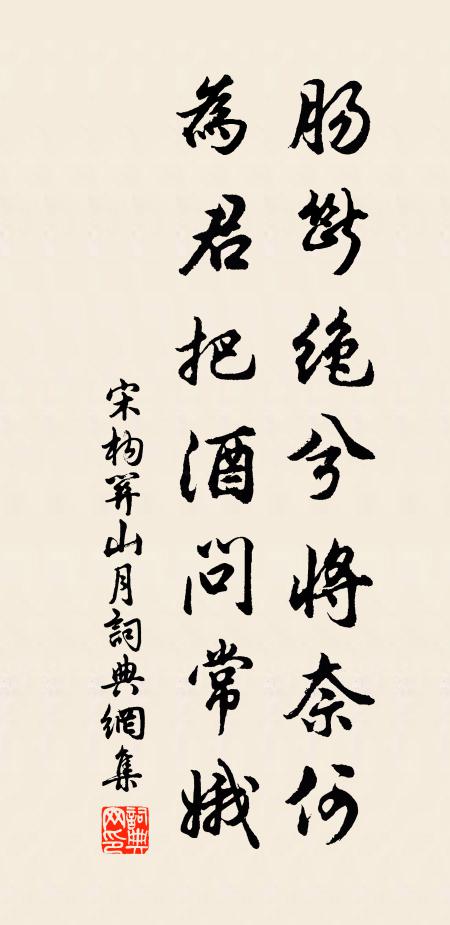 腸斷絕兮將奈何
為君把酒問常娥
宋構關山月詞典網集
詞典网印